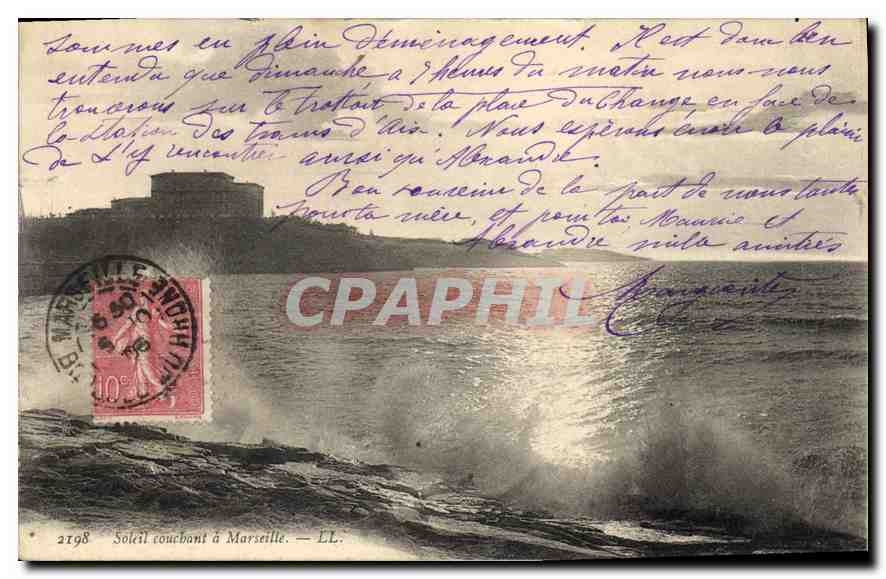 sommes en plein déménagement. Il est donc bien
entendu que dimanche a 9 heures du matin nous nous
trouverons sur le trottoir de la place du Change en face de
la station des trams d'Aix. Nous espérons avoir le plaisir
de t'y rencontrer ainsi qu'Alexandre.
Bon souvenir de la part de nous toutes
pour ta mère, et pour toi Maurice et
Alexandre mille amitiés
Marguerite
MARSEILLE
BHES DU RHONE
10c
CPAPHIL
2198 Soleil couchant à Marseille. — LL.